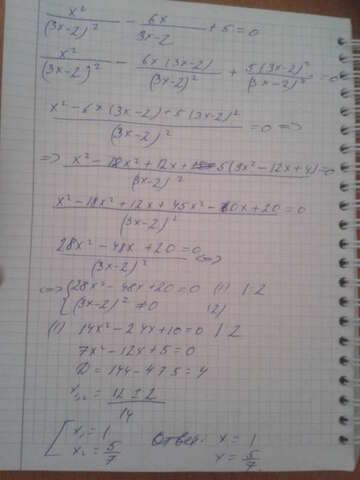 x²/(3x-2)² - 6x/3x-2 + 5 = 0
x²/(3x-2)² - 6x(3x-2)/(3x-2)² + 5(3x-2)²/(3x-2)² = 0
x² - 6x(3x-2) + 5(3x-2)²/(3x-2)² = 0 =>
=> x² - 18x² + 12x + 5(9x² - 12x + 4)/(3x-2)² = 0
x² - 18x² + 12x + 45x² - 60x + 20/(3x-2)² = 0
28x² - 48x + 20/(3x-2)² = 0 <=>
<=> { 28x² - 48x + 20 = 0 (1) | : 2
{ (3x-2)² ≠ 0 (2)
(1) 14x² - 24x + 10 = 0 | : 2
7x² - 12x + 5 = 0
D = 144 - 4·7·5 = 4
x₁,₂ = 12 ± 2/14
[ x₁ = 1
x₂ = 5/7
Ответ: x = 1
x = 5/7